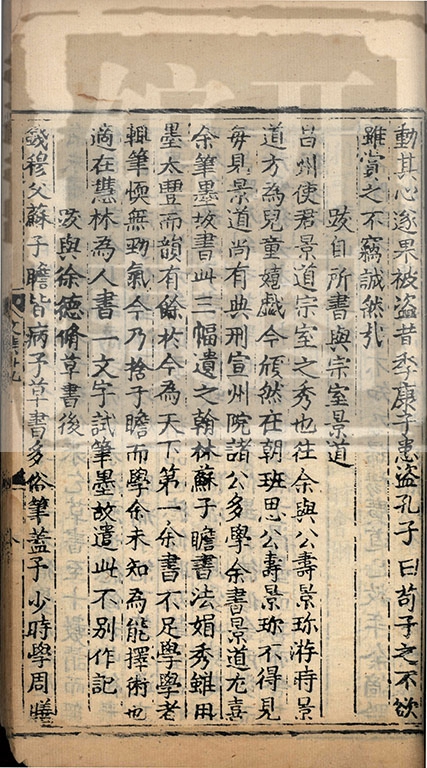 動其心遂果被盜昔季康子患盜孔子曰苟子之不欲
雖賞之不竊誠然㢤
跋自所書與宗室景道
昌州使君景道宗室之秀也往余與公壽景珎游時景
道方為兒童嬉戱今頎然在朝班思公壽景珎不得見
每見景道尚有典刑宣州院諸公多學余書景道尤喜
余筆墨故書此三幅遺之翰林蘇子瞻書法娟秀雖用
墨太豐而韻有餘於今為天下第一余書不足學學者
輙筆愞無勁氣今乃捨子瞻而學余未知為能擇術也
適在慧林為人書一文字試筆墨故遣此不別作記
跋與徐德脩草書後
錢穆父蘇子瞻皆病予草書多俗筆蓋予少時學周膳